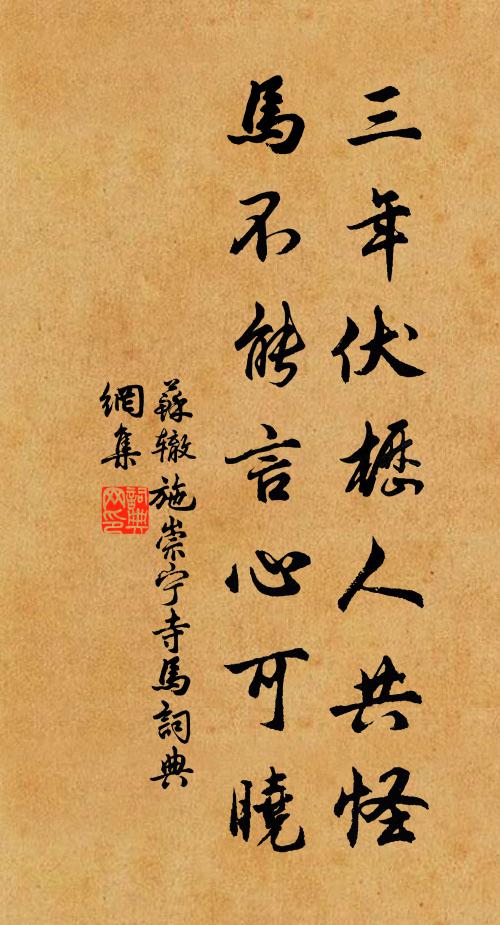 三年伏櫪人共怪
馬不能言心可曉
蘇辙施崇宁寺馬詞典
網集
詞典
网印